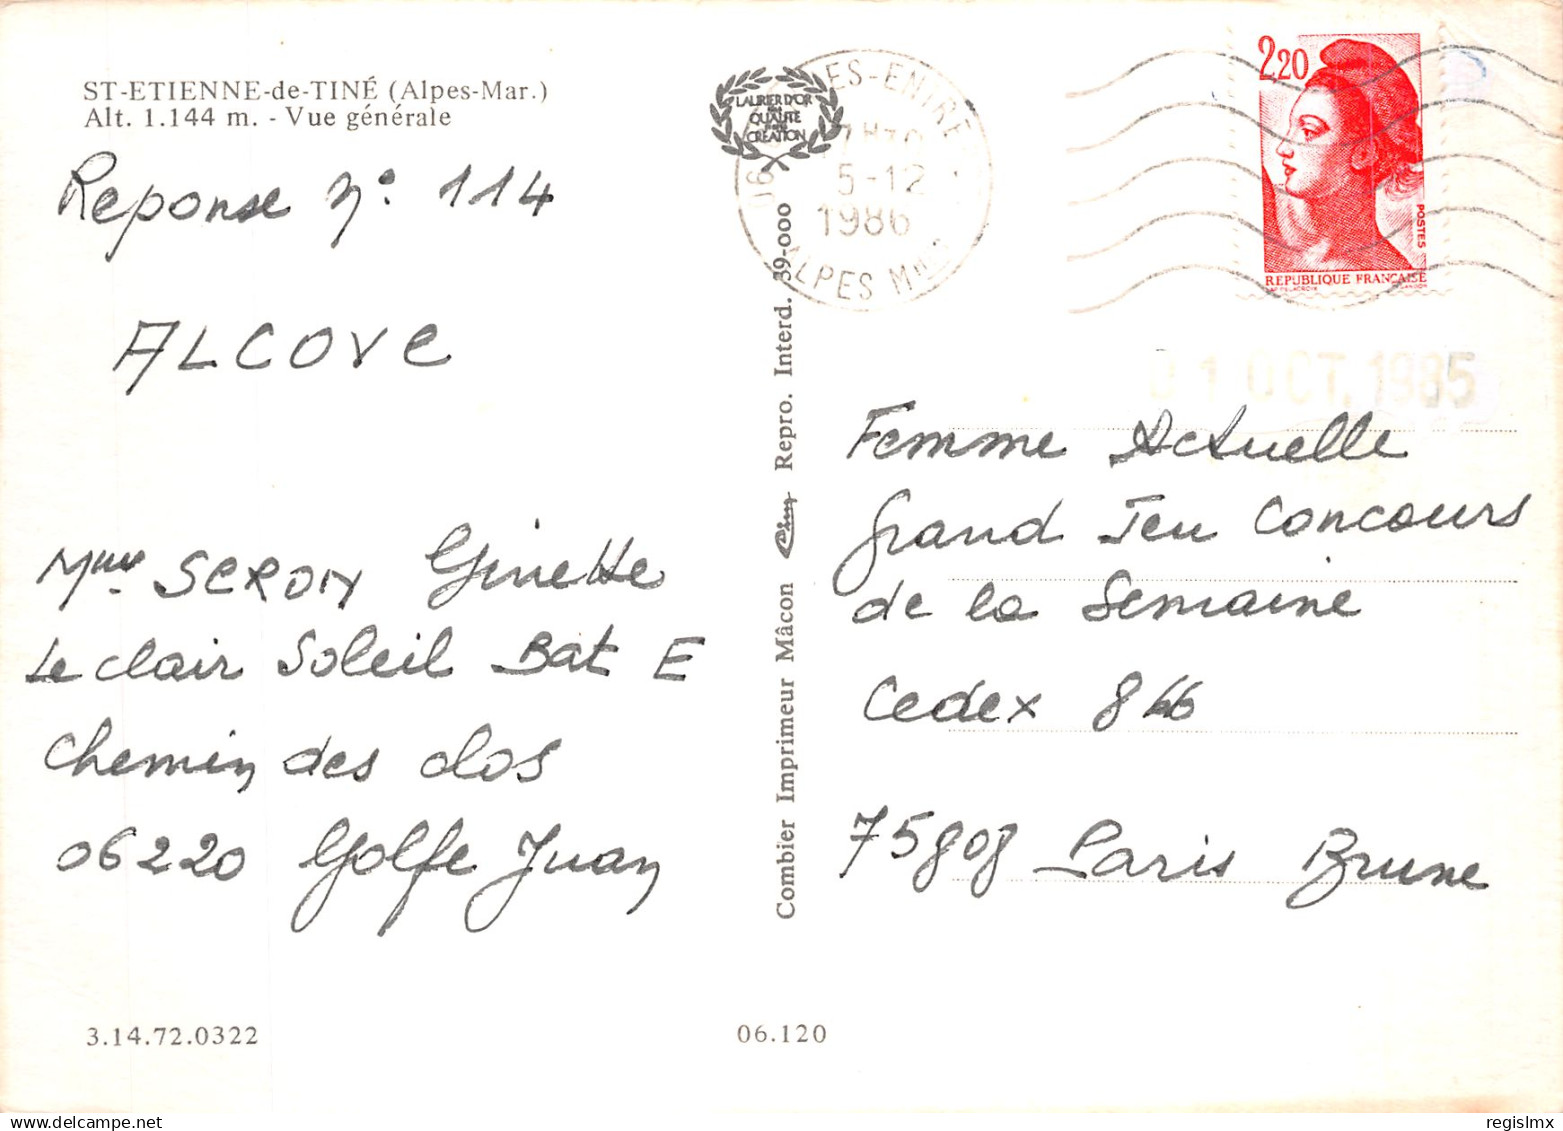 ST-ETIENNE-de-TINÉ (Alpes-Mar.)
Alt. 1.144 m. - Vue générale
Reponse N° 114
ALCOVE
Mme SEROIN Ginette
Le clair Soleil Bat E
Chemin des clos
06220 Golfe Juan
3.14.72.0322
06.120
Combier Imprimeur Mâcon Cim Repro. Interd. 39-000
LAURIER D'OR
QUALITE
CREATION
5-12
1986
ALPES MMES
2,20
POSTES
REPUBLIQUE FRANÇAISE
OCT. 1985
Femme Actuelle
Grand Jeu Concours
de la Semaine
Cedex 866
75808 Paris Brune
regislmx